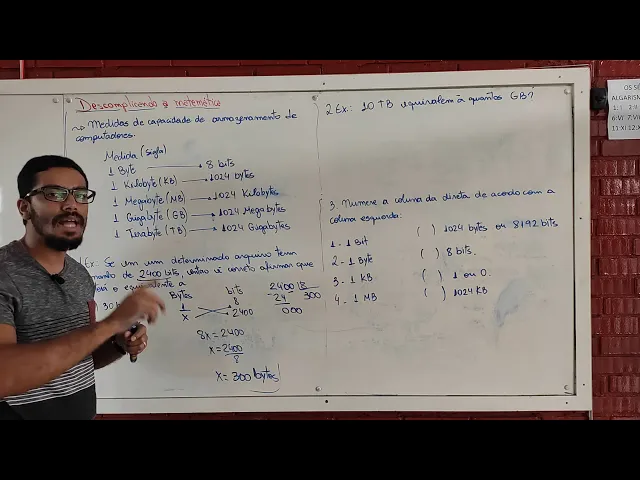 Descomplicando a matemática
~> Medidas de capacidade de armazenamento de
computadores.
Medida (sigla)
1 Byte → 8 bits
1 Kilobyte (KB) → 1024 bytes
1 Megabyte (MB) → 1024 Kilobytes
1 Gigabyte (GB) → 1024 Megabytes
1 Terabyte (TB) → 1024 Gigabytes
1 Ex. Se em um determinado arquivo tem
de 2400 bits, então é correto afirmar que
o equivalente a
Bytes bits
1 8
x 2400
8x = 2400
x = 2400
8
x = 300 bytes
2400 8
-24 300
000
2 Ex.: 10 TB equivalem à quantos GB?
3. Numere a coluna da direta de acordo com a
coluna esquerda:
1 - 1 Bit ( ) 1024 bytes ou 8192 bits
2 - 1 Byte ( ) 8 bits.
3 - 1 KB ( ) 1 ou 0.
4 - 1 MB ( ) 1024 KB
ALGARISM